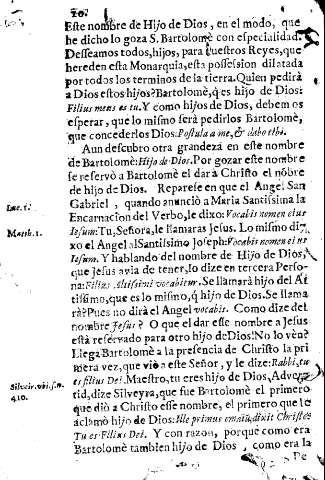 20.
Este nombre de Hijo de Dios, en el modo, que
he dicho lo goza S. Bartolomè con especialidad.
Desseamos todos, hijos, para nuestros Reyes, que
hereden esta Monarquia, esta possesion dilatada
por todos los terminos de la tierra. Quien pedirà
à Dios estos hijos? Bartolomè, q̃ es hijo de Dios:
Filius meus es tu. Y como hijos de Dios, debemos
esperar, que lo mismo serà pedirlos Bartolomè,
que concederlos Dios: Postula a me, & dabo tibi.
Aun descubro otra grandeza en este nombre
de Bartolomè: Hijo de Dios. Por gozar este nombre
se reservò a Bartolomè el dar à Christo el nõbre
de hijo de Dios. Reparese en que el Angel San
Luc. 1.
Gabriel, quando anunciò a Maria Santissima la
Encarnacion del Verbo, le dixo: Vocabis nomen eius
Iesum: Tu, Señora, le llamaras Jesus. Lo mismo di-
Matth. 1.
xo el Angel al Santissimo Joseph: Vocabis nomen eius
Iesum. Y hablando del nombre de Hijo de Dios,
que Jesus avia de tener, lo dize en tercera Perso-
na: Filius Altissimi vocabitur. Se llamarà hijo del Al-
tissimo, que es lo mismo, q̃ hijo de Dios. Se llama
rà? Pues no dirà el Angel vocabis. Como dize del
nombre Jesus? O que el dar esse nombre a Jesus
està reservado para otro hijo de Dios! No lo vèn?
Llega Bartolomè a la presencia de Christo la pri
mera vez, que viò a este Señor, y le dize: Rabbi, tu
es filius Dei. Maestro, tu eres hijo de Dios. Adver-
Silveir. ubi. s. n.
410.
tid, dize Silveyra, que fue Bartolomè el primero
que diò a Christo esse nombre, el primero que le
aclamò hijo de Dios: Ille primus enim dixit Christo:
Tu es Filius Dei. Y con razon, porque como era
Bartolomè tambien hijo de Dios, como era la
De